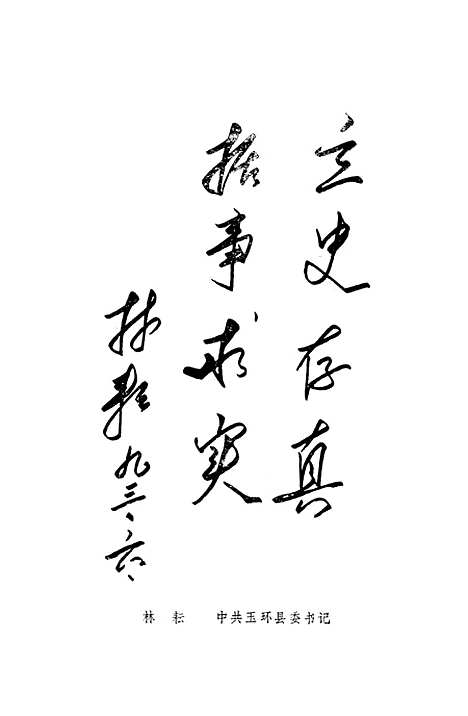 立史存真
据事求实
林耘九三、六、
林 耘 中共玉环县委书记